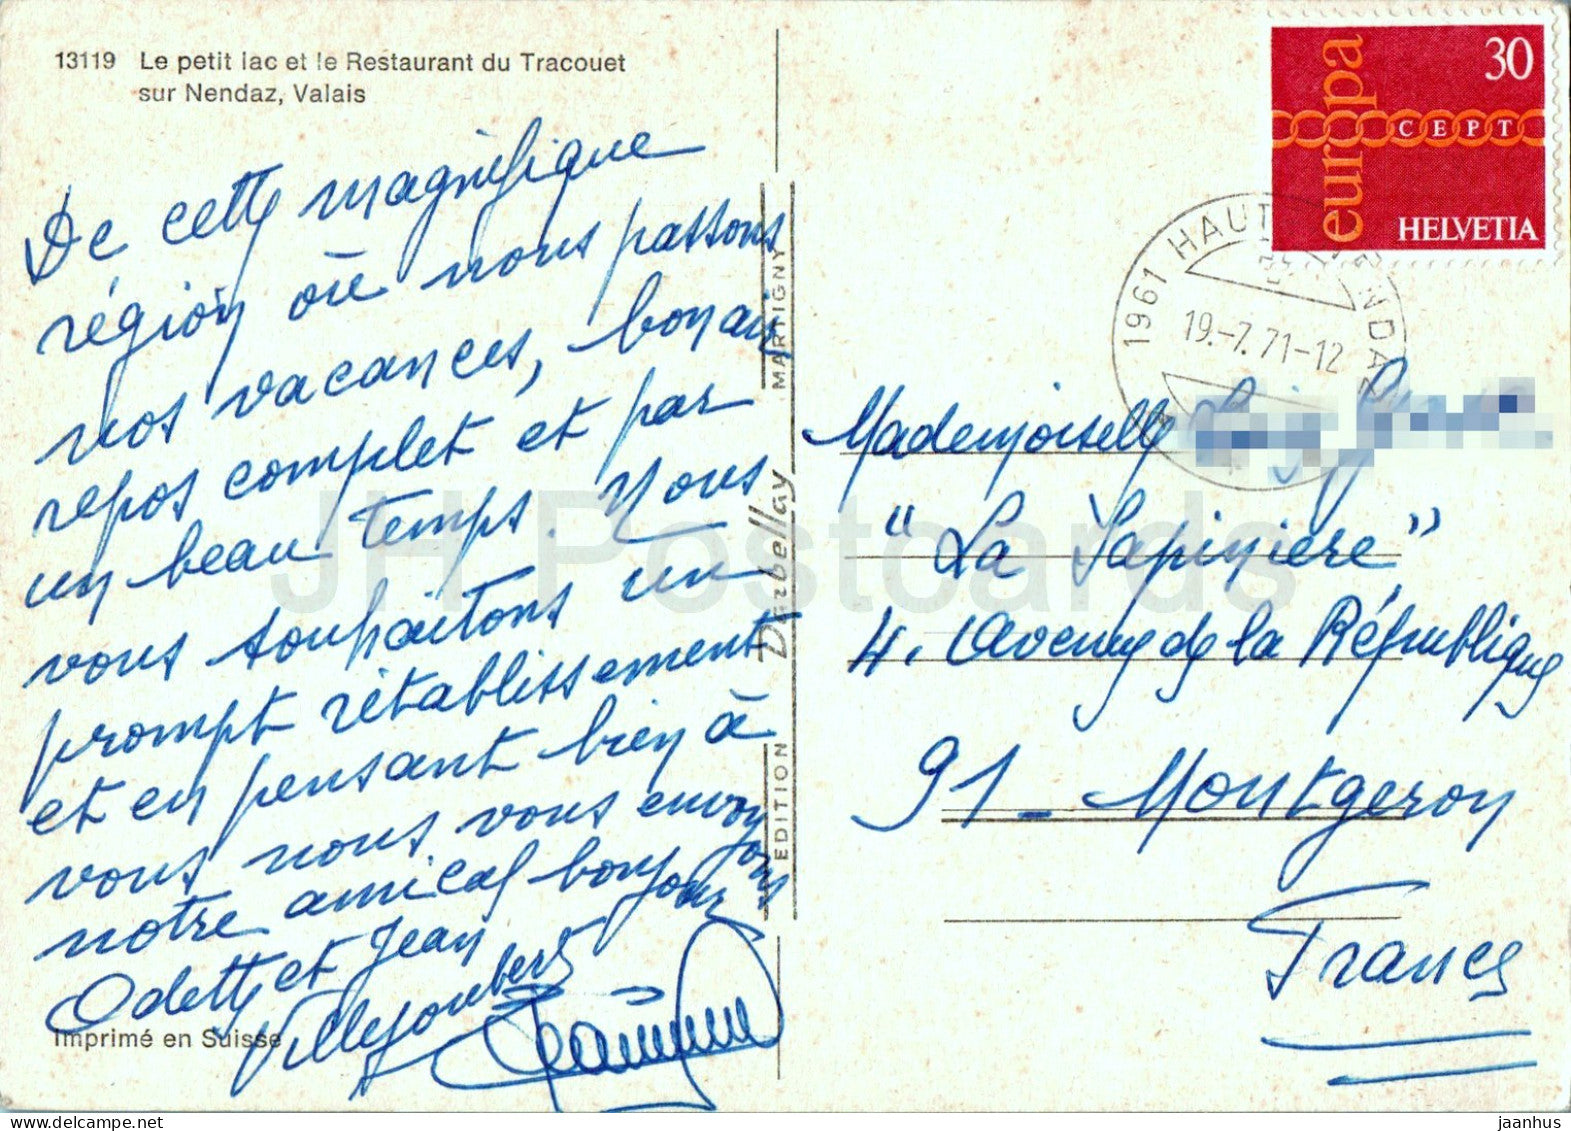 13119 Le petit lac et le Restaurant du Tracouet
sur Nendaz, Valais
De cette magnifique
région où nous passons
nos vacances, bon air,
repos complet et par
un beau temps. Nous
vous souhaitons un
prompt rétablissement
et en pensant bien à
vous nous vous envoyons
notre amical bonjour
Odette et Jean
Imprimé en Suisse
EDITION Darbellay MARTIGNY
30
europa
CEPT
HELVETIA
1961 HAUTE NENDAZ
19.-7.71-12
Mademoiselle
"La Sapinière"
4. Avenue de la République
91 - Montgeron
France
JH Postcards
jaanhus